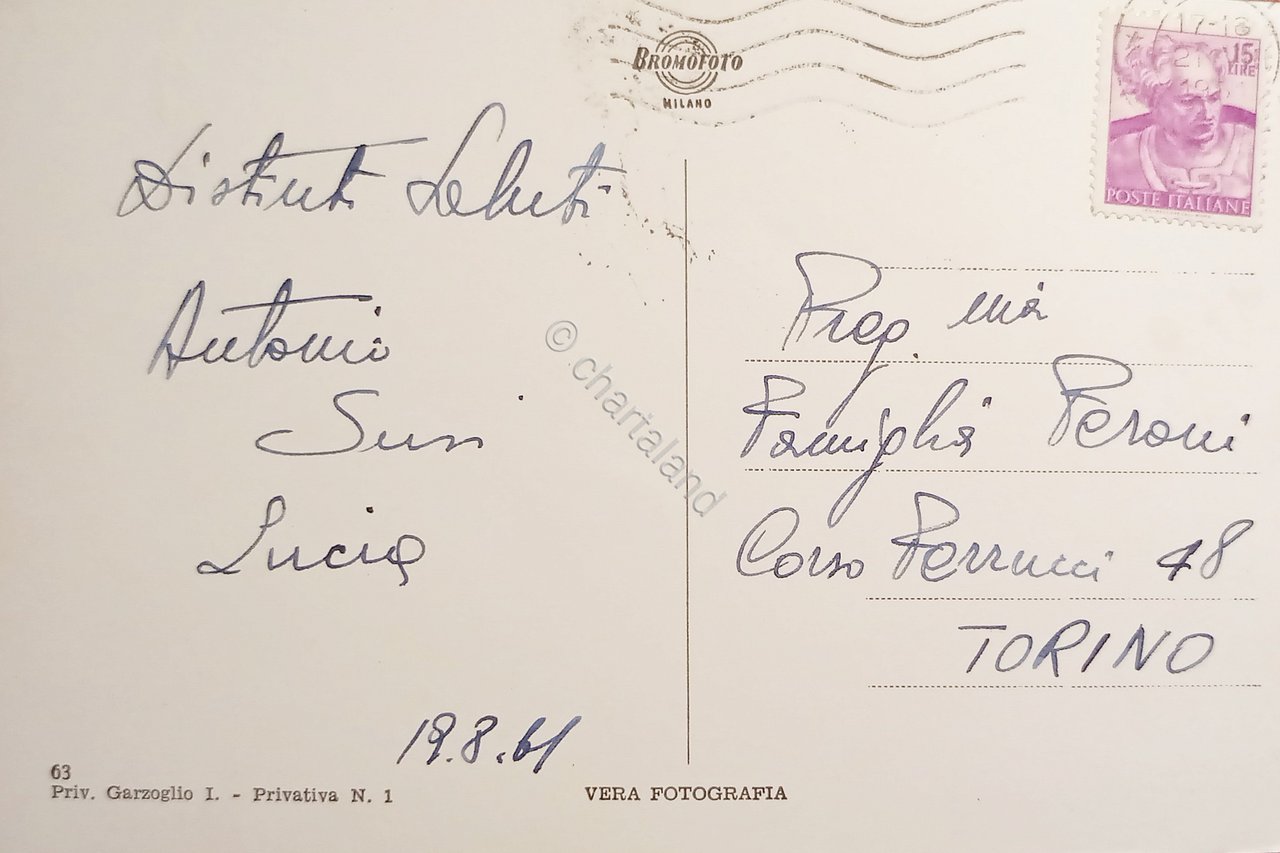 BROMOFOTO
MILANO
17-18
21
19
15
LIRE
POSTE ITALIANE
Distinti Saluti
Antonio
Susi
Lucia
19.8.61
Preg. mia
Famiglia Peroni
Corso Ferrucci 48
TORINO
© chartaland
63
Priv. Garzoglio I. - Privativa N. 1
VERA FOTOGRAFIA